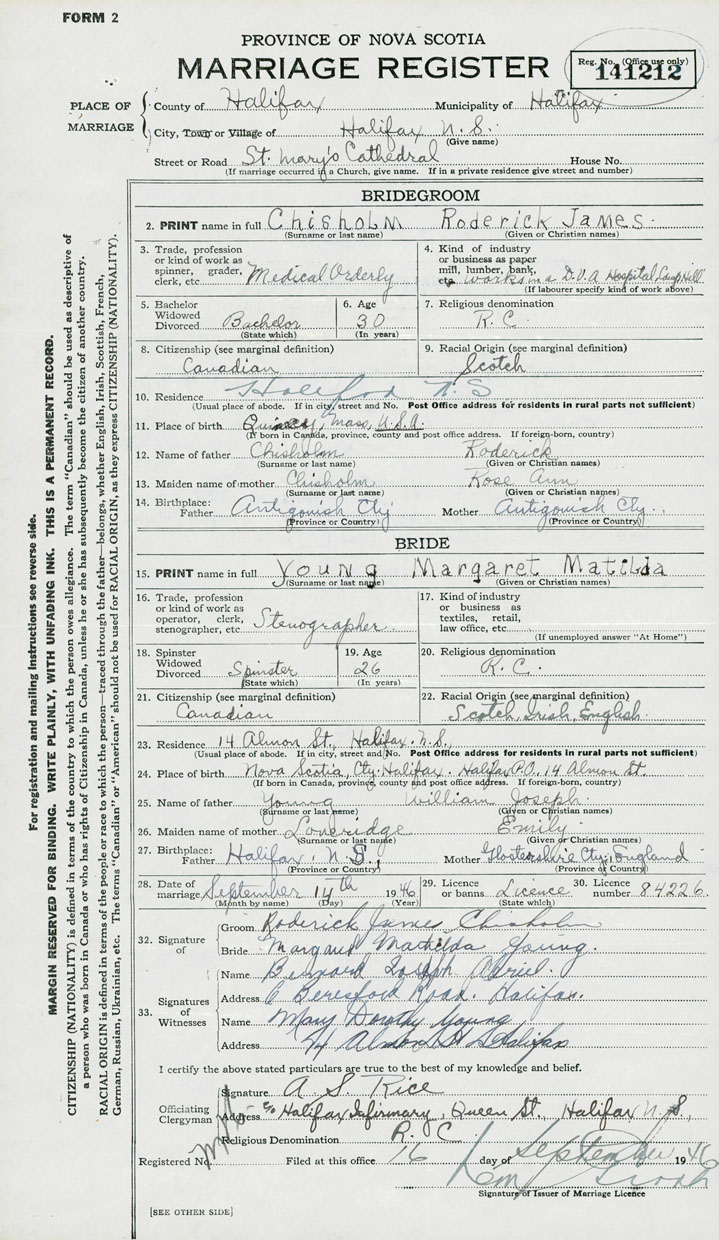 FORM 2
PROVINCE OF NOVA SCOTIA
MARRIAGE REGISTER
Reg. No. (Office use only)
141212
PLACE OF MARRIAGE
County of Halifax Municipality of Halifax
City, Town or Village of Halifax N.S.
(Give name)
Street or Road St. Mary's Cathedral House No.
(If marriage occurred in a Church, give name. If in a private residence give street and number)
BRIDEGROOM
2. PRINT name in full Chisholm Roderick James.
(Surname or last name) (Given or Christian names)
3. Trade, profession or kind of work as spinner, grader, clerk, etc Medical Orderly
4. Kind of industry or business as paper mill, lumber, bank, etc works in a D.V.A Hospital Camp Hill
(If labourer specify kind of work above)
5. Bachelor Widowed Divorced Bachelor
(State which)
6. Age 30
(In years)
7. Religious denomination
R.C.
8. Citizenship (see marginal definition)
Canadian
9. Racial Origin (see marginal definition)
Scotch
10. Residence Halifax N.S
(Usual place of abode. If in city, street and No. Post Office address for residents in rural parts not sufficient)
11. Place of birth Quincy, Mass, U.S.A.
(If born in Canada, province, county and post office address. If foreign-born, country)
12. Name of father Chisholm Roderick
(Surname or last name) (Given or Christian names)
13. Maiden name of mother Chisholm Rose Ann
(Surname or last name) (Given or Christian names)
14. Birthplace: Father Antigonish Cty Mother Antigonish Cty.
(Province or Country) (Province or Country)
BRIDE
15. PRINT name in full Young Margaret Matilda
(Surname or last name) (Given or Christian names)
16. Trade, profession or kind of work as operator, clerk, stenographer, etc Stenographer
17. Kind of industry or business as textiles, retail, law office, etc.
(If unemployed answer "At Home")
18. Spinster Widowed Divorced Spinster
(State which)
19. Age 26
(In years)
20. Religious denomination
R.C.
21. Citizenship (see marginal definition)
Canadian
22. Racial Origin (see marginal definition)
Scotch, Irish, English.
23. Residence 14 Almon St., Halifax. N.S.,
(Usual place of abode. If in city, street and No. Post Office address for residents in rural parts not sufficient)
24. Place of birth Nova Scotia, Cty. Halifax. Halifax P.O. 14 Almon St.
(If born in Canada, province, county and post office address. If foreign-born, country)
25. Name of father Young William Joseph.
(Surname or last name) (Given or Christian names)
26. Maiden name of mother Loveridge Emily
(Surname or last name) (Given or Christian names)
27. Birthplace: Father Halifax. N.S. Mother Glostershire Cty, England
(Province or Country) (Province or Country)
28. Date of marriage September 14th 1946
(Month by name) (Day) (Year)
29. Licence or banns Licence
(State which)
30. Licence number 84226.
32. Signature of
Groom Roderick James Chisholm
Bride Margaret Mathilda Young.
33. Signatures of Witnesses
Name Bernard Joseph
Address 6 Beresford Road. Halifax.
Name Mary Dorothy Young
Address Almon St Halifax
I certify the above stated particulars are true to the best of my knowledge and belief.
Officiating Clergyman
Signature A. S. Rice
Address c/o Halifax Infirmary, Queen St., Halifax N.S,
Religious Denomination R.C.
Registered No. Filed at this office 16 day of September 1946
Signature of Issuer of Marriage Licence
[SEE OTHER SIDE]
For registration and mailing Instructions see reverse side.
MARGIN RESERVED FOR BINDING. WRITE PLAINLY, WITH UNFADING INK. THIS IS A PERMANENT RECORD.
CITIZENSHIP (NATIONALITY) is defined in terms of the country to which the person owes allegiance. The term "Canadian" should be used as descriptive of
a person who was born in Canada or who has rights of Citizenship in Canada, unless he or she has subsequently become the citizen of another country.
RACIAL ORIGIN is defined in terms of the people or race to which the person—traced through the father—belongs, whether English, Irish, Scottish, French,
German, Russian, Ukrainian, etc. The terms "Canadian" or "American" should not be used for RACIAL ORIGIN, as they express CITIZENSHIP (NATIONALITY).